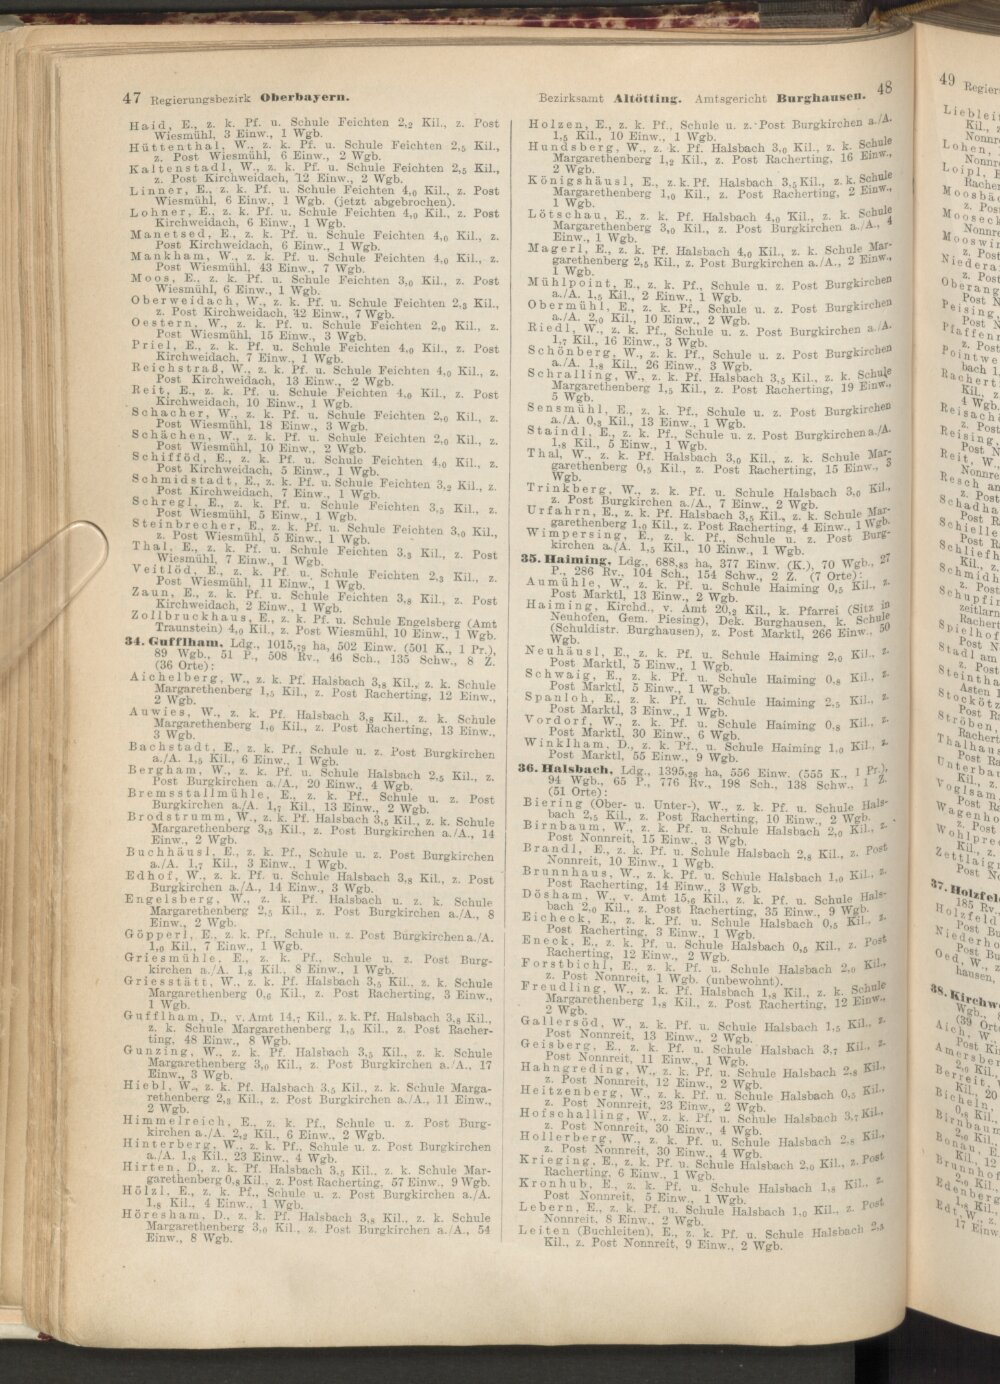 47 Regierungsbezirk Oberbayern.
Haid, E., z. k. Pf. u. Schule Feichten 2,2 Kil., z. Post
Wiesmühl, 3 Einw., 1 Wgb.
Hüttenthal, W., z. k. Pf. u. Schule Feichten 2,5 Kil.,
z. Post Wiesmühl, 6 Einw., 2 Wgb.
Kaltenstadl, W., z. k. Pf. u. Schule Feichten 2,5 Kil.,
z. Post Kirchweidach, 12 Einw., 2 Wgb.
Linner, E., z. k. Pf. u. Schule Feichten 4,0 Kil., z. Post
Wiesmühl, 6 Einw., 1 Wgb. (jetzt abgebrochen).
Lohner, E., z. k. Pf. u. Schule Feichten 4,0 Kil., z. Post
Kirchweidach, 6 Einw., 1 Wgb.
Manetsed, E., z. k. Pf. u. Schule Feichten 4,0 Kil., z.
Post Kirchweidach, 6 Einw., 1 Wgb.
Mankham, W., z. k. Pf. u. Schule Feichten 4,0 Kil., z.
Post Wiesmühl, 43 Einw., 7 Wgb.
Moos, E., z. k. Pf. u. Schule Feichten 3,0 Kil., z. Post
Wiesmühl, 6 Einw., 1 Wgb.
Oberweidach, W., z. k. Pf. u. Schule Feichten 2,3 Kil.,
z. Post Kirchweidach, 42 Einw., 7 Wgb.
Oestern, W., z. k. Pf. u. Schule Feichten 2,0 Kil., z.
Post Wiesmühl, 15 Einw., 3 Wgb.
Priel, E., z. k. Pf. u. Schule Feichten 4,0 Kil., z. Post
Kirchweidach, 7 Einw., 1 Wgb.
Reichstraß, W., z. k. Pf. u. Schule Feichten 4,0 Kil., z.
Post Kirchweidach, 13 Einw., 2 Wgb.
Reit, E., z. k. Pf. u. Schule Feichten 4,0 Kil., z. Post
Kirchweidach, 10 Einw., 1 Wgb.
Schacher, W., z. k. Pf. u. Schule Feichten 2,0 Kil., z.
Post Wiesmühl, 18 Einw., 3 Wgb.
Schächen, W., z. k. Pf. u. Schule Feichten 2,0 Kil., z.
Post Wiesmühl, 10 Einw., 2 Wgb.
Schifföd, E., z. k. Pf. u. Schule Feichten 4,0 Kil., z.
Post Kirchweidach, 5 Einw., 1 Wgb.
Schmidstadt, E., z. k. Pf. u. Schule Feichten 3,2 Kil., z.
Post Kirchweidach, 7 Einw., 1 Wgb.
Schregl, E., z. k. Pf. u. Schule Feichten 3,5 Kil., z.
Post Wiesmühl, 5 Einw., 1 Wgb.
Steinbrecher, E., z. k. Pf. u. Schule Feichten 3,0 Kil.,
z. Post Wiesmühl, 5 Einw., 1 Wgb.
Thal, E., z. k. Pf. u. Schule Feichten 3,3 Kil., z. Post
Wiesmühl, 7 Einw., 1 Wgb.
Veitlöd, E., z. k. Pf. u. Schule Feichten 2,3 Kil., z.
Post Wiesmühl, 11 Einw., 1 Wgb.
Zaun, E., z. k. Pf. u. Schule Feichten 3,8 Kil., z. Post
Kirchweidach, 2 Einw., 1 Wgb.
Zollbruckhaus, E., z. k. Pf. u. Schule Engelsberg (Amt
Traunstein) 4,0 Kil., z. Post Wiesmühl, 10 Einw., 1 Wgb.
34. Gufflham, Ldg., 1015,79 ha, 502 Einw. (501 K., 1 Pr.),
89 Wgb., 51 P., 508 Rv., 46 Sch., 135 Schw., 8 Z.
(36 Orte):
Aichelberg, W., z. k. Pf. Halsbach 3,8 Kil., z. k. Schule
Margarethenberg 1,5 Kil., z. Post Racherting, 12 Einw.,
2 Wgb.
Auwies, W., z. k. Pf. Halsbach 3,8 Kil., z. k. Schule
Margarethenberg 1,0 Kil., z. Post Racherting, 13 Einw.,
3 Wgb.
Bachstadt, E., z. k. Pf., Schule u. z. Post Burgkirchen
a./A. 1,5 Kil., 6 Einw., 1 Wgb.
Bergham, W., z. k. Pf. u. Schule Halsbach 2,5 Kil., z.
Post Burgkirchen a./A., 20 Einw., 4 Wgb.
Bremsstallmühle, E., z. k. Pf., Schule u. z. Post
Burgkirchen a./A. 1,7 Kil., 13 Einw., 2 Wgb.
Brodstrumm, W., z. k. Pf. Halsbach 3,5 Kil., z. k. Schule
Margarethenberg 3,5 Kil., z. Post Burgkirchen a./A., 14
Einw., 2 Wgb.
Buchhäusl, E., z. k. Pf., Schule u. z. Post Burgkirchen
a./A. 1,7 Kil., 3 Einw., 1 Wgb.
Edhof, W., z. k. Pf. u. Schule Halsbach 3,8 Kil., z. Post
Burgkirchen a./A., 14 Einw., 3 Wgb.
Engelsberg, W., z. k. Pf. Halsbach u. z. k. Schule
Margarethenberg 2,5 Kil., z. Post Burgkirchen a./A., 8
Einw., 2 Wgb.
Göpperl, E., z. k. Pf., Schule u. z. Post Burgkirchen a./A.
1,0 Kil., 7 Einw., 1 Wgb.
Griesmühle, E., z. k. Pf., Schule u. z. Post Burg-
kirchen a./A. 1,8 Kil., 8 Einw., 1 Wgb.
Griesstätt, W., z. k. Pf. Halsbach 3,5 Kil., z. k. Schule
Margarethenberg 0,6 Kil., z. Post Racherting, 3 Einw.,
1 Wgb.
Gufflham, D., v. Amt 14,7 Kil., z. k. Pf. Halsbach 3,8 Kil.,
z. k. Schule Margarethenberg 1,5 Kil., z. Post Racher-
ting, 48 Einw., 8 Wgb.
Gunzing, W., z. k. Pf. Halsbach 3,5 Kil., z. k. Schule
Margarethenberg 3,0 Kil., z. Post Burgkirchen a./A., 17
Einw., 3 Wgb.
Hiebl, W., z. k. Pf. Halsbach 3,5 Kil., z. k. Schule Marga-
rethenberg 2,3 Kil., z. Post Burgkirchen a./A., 11 Einw.,
2 Wgb.
Himmelreich, E., z. k. Pf., Schule u. z. Post Burg-
kirchen a./A. 2,2 Kil., 6 Einw., 2 Wgb.
Hinterberg, W., z. k. Pf., Schule u. z. Post Burgkirchen
a./A. 1,8 Kil., 23 Einw., 4 Wgb.
Hirten, D., z. k. Pf. Halsbach 3,5 Kil., z. k. Schule Mar-
garethenberg 0,8 Kil., z. Post Racherting, 57 Einw., 9 Wgb.
Hölzl, E., z. k. Pf., Schule u. z. Post Burgkirchen a./A.
1,8 Kil., 4 Einw., 1 Wgb.
Höresham, D., z. k. Pf. Halsbach 3,8 Kil., z. k. Schule
Margarethenberg 3,0 Kil., z. Post Burgkirchen a./A., 54
Einw., 8 Wgb.
Bezirksamt Altötting. Amtsgericht Burghausen. 48
Holzen, E., z. k. Pf., Schule u. z. Post Burgkirchen a./A.
1,5 Kil., 10 Einw., 1 Wgb.
Hundsberg, W., z. k. Pf. Halsbach 3,0 Kil., z. k. Schule
Margarethenberg 1,2 Kil., z. Post Racherting, 16 Einw.,
2 Wgb.
Königshäusl, E., z. k. Pf. Halsbach 3,5 Kil., z. k. Schule
Margarethenberg 1,0 Kil., z. Post Racherting, 2 Einw.,
1 Wgb.
Lötschau, E., z. k. Pf. Halsbach 4,0 Kil., z. k. Schule
Margarethenberg 3,0 Kil., z. Post Burgkirchen a./A., 4
Einw., 1 Wgb.
Magerl, E., z. k. Pf. Halsbach 4,0 Kil., z. k. Schule Mar-
garethenberg 2,5 Kil., z. Post Burgkirchen a./A., 2 Einw.,
1 Wgb.
Mühlpoint, E., z. k. Pf., Schule u. z. Post Burgkirchen
a./A. 1,5 Kil., 2 Einw., 1 Wgb.
Obermühl, E., z. k. Pf., Schule u. z. Post Burgkirchen
a./A. 2,0 Kil., 10 Einw., 2 Wgb.
Riedl, W., z. k. Pf., Schule u. z. Post Burgkirchen a./A.
1,7 Kil., 16 Einw., 3 Wgb.
Schönberg, W., z. k. Pf., Schule u. z. Post Burgkirchen
a./A. 1,8 Kil., 26 Einw., 3 Wgb.
Schralling, W., z. k. Pf. Halsbach 3,5 Kil., z. k. Schule
Margarethenberg 1,5 Kil., z. Post Racherting, 19 Einw.,
5 Wgb.
Sensmühl, E., z. k. Pf., Schule u. z. Post Burgkirchen
a./A. 0,3 Kil., 13 Einw., 1 Wgb.
Staindl, E., z. k. Pf., Schule u. z. Post Burgkirchen a./A.
1,8 Kil., 5 Einw., 1 Wgb.
Thal, W., z. k. Pf. Halsbach 3,0 Kil., z. k. Schule Mar-
garethenberg 0,5 Kil., z. Post Racherting, 15 Einw., 3
Wgb.
Trinkberg, W., z. k. Pf. u. Schule Halsbach 3,0 Kil.,
z. Post Burgkirchen a./A., 7 Einw., 2 Wgb.
Urfahrn, E., z. k. Pf. Halsbach 3,5 Kil., z. k. Schule Mar-
garethenberg 1,0 Kil., z. Post Racherting, 4 Einw., 1 Wgb.
Wimpersing, E., z. k. Pf., Schule u. z. Post Burg-
kirchen a./A. 1,5 Kil., 10 Einw., 1 Wgb.
35. Haiming, Ldg., 688,83 ha, 377 Einw. (K.), 70 Wgb., 27
P., 286 Rv., 104 Sch., 154 Schw., 2 Z. (7 Orte):
Aumühle, W., z. k. Pf. u. Schule Haiming 0,5 Kil., z.
Post Marktl, 13 Einw., 2 Wgb.
Haiming, Kirchd., v. Amt 20,2 Kil., k. Pfarrei (Sitz in
Neuhofen, Gem. Piesing), Dek. Burghausen, k. Schule
(Schuldistr. Burghausen), z. Post Marktl, 266 Einw., 50
Wgb.
Neuhäusl, E., z. k. Pf. u. Schule Haiming 2,0 Kil., z.
Post Marktl, 5 Einw., 1 Wgb.
Schwaig, E., z. k. Pf. u. Schule Haiming 0,8 Kil., z.
Post Marktl, 5 Einw., 1 Wgb.
Spanloh, E., z. k. Pf. u. Schule Haiming 2,5 Kil., z.
Post Marktl, 3 Einw., 1 Wgb.
Vordorf, W., z. k. Pf. u. Schule Haiming 0,8 Kil., z.
Post Marktl, 30 Einw., 6 Wgb.
Winklham, D., z. k. Pf., u. Schule Haiming 1,0 Kil., z.
Post Marktl, 55 Einw., 9 Wgb.
36. Halsbach, Ldg., 1395,26 ha, 556 Einw. (555 K., 1 Pr.),
94 Wgb., 65 P., 776 Rv., 198 Sch., 138 Schw., 1 Z.
(51 Orte):
Biering (Ober- u. Unter-), W., z. k. Pf. u. Schule Hals-
bach 2,5 Kil., z. Post Racherting, 10 Einw., 2 Wgb.
Birnbaum, W., z. k. Pf. u. Schule Halsbach 2,0 Kil., z.
Post Nonnreit, 15 Einw., 3 Wgb.
Brandl, E., z. k. Pf. u. Schule Halsbach 2,8 Kil., z. Post
Nonnreit, 10 Einw., 1 Wgb.
Brunnhaus, W., z. k. Pf. u. Schule Halsbach 1,0 Kil., z.
Post Racherting, 14 Einw., 3 Wgb.
Dösham, W., v. Amt 15,6 Kil., z. k. Pf. u. Schule Hals-
bach 2,0 Kil., z. Post Racherting, 35 Einw., 9 Wgb.
Eicheck, E., z. k. Pf. u. Schule Halsbach 0,5 Kil., z.
Post Racherting, 3 Einw., 1 Wgb.
Eneck, E., z. k. Pf. u. Schule Halsbach 0,5 Kil., z. Post
Racherting, 12 Einw., 2 Wgb.
Forstbichl, E., z. k. Pf. u. Schule Halsbach 2,0 Kil.,
z. Post Nonnreit, 1 Wgb. (unbewohnt).
Freudling, W., z. k. Pf. Halsbach 1,8 Kil., z. k. Schule
Margarethenberg 1,8 Kil., z. Post Racherting, 12 Einw.,
2 Wgb.
Gallersöd, W., z. k. Pf. u. Schule Halsbach 1,5 Kil., z.
Post Nonnreit, 13 Einw., 2 Wgb.
Geisberg, E., z. k. Pf. u. Schule Halsbach 3,7 Kil., z.
Post Nonnreit, 11 Einw., 1 Wgb.
Hahngreding, W., z. k. Pf. u. Schule Halsbach 2,8 Kil.,
z. Post Nonnreit, 12 Einw., 2 Wgb.
Heitzenberg, W., z. k. Pf. u. Schule Halsbach 0,5 Kil.,
z. Post Nonnreit, 23 Einw., 2 Wgb.
Hofschalling, W., z. k. Pf. u. Schule Halsbach 3,7 Kil.,
z. Post Nonnreit, 30 Einw., 4 Wgb.
Hollerberg, W., z. k. Pf. u. Schule Halsbach 2,8 Kil.,
z. Post Nonnreit, 30 Einw., 4 Wgb.
Krieging, E., z. k. Pf. u. Schule Halsbach 2,0 Kil., z. Post
Racherting, 6 Einw., 1 Wgb.
Kronhub, E., z. k. Pf. u. Schule Halsbach 1,8 Kil., z.
Post Nonnreit, 5 Einw., 1 Wgb.
Lebern, E., z. k. Pf. u. Schule Halsbach 1,0 Kil., z. Post
Nonnreit, 8 Einw., 2 Wgb.
Leiten (Buchleiten), E., z. k. Pf. u. Schule Halsbach 2,5
Kil., z. Post Nonnreit, 9 Einw., 2 Wgb.
49